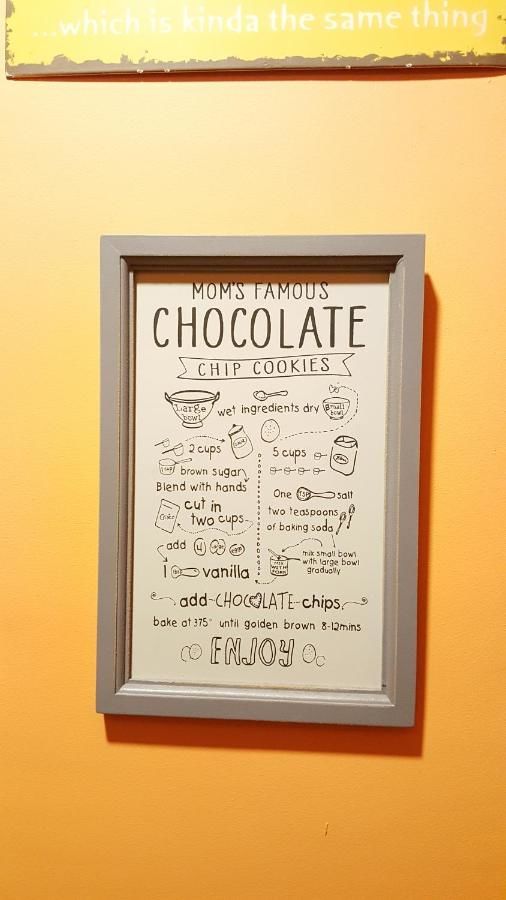 ...which is kinda the same thing
MOM'S FAMOUS
CHOCOLATE
CHIP COOKIES
Large bowl
wet ingredients dry
Small bowl
2 cups
brown sugar
Blend with hands
cut in
two cups
add 4
1 vanilla
5 cups
One TSP salt
two teaspoons
of baking soda
MIX WITH FORK
mix small bowl
with large bowl
gradually
add CHOCOLATE chips
bake at 375° until golden brown 8-12mins
ENJOY